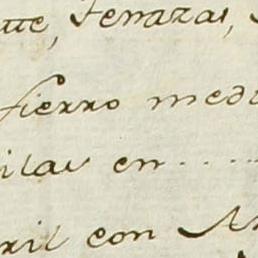 que, Terrazas,
fierro medi
ilas en . . . . .
ril con